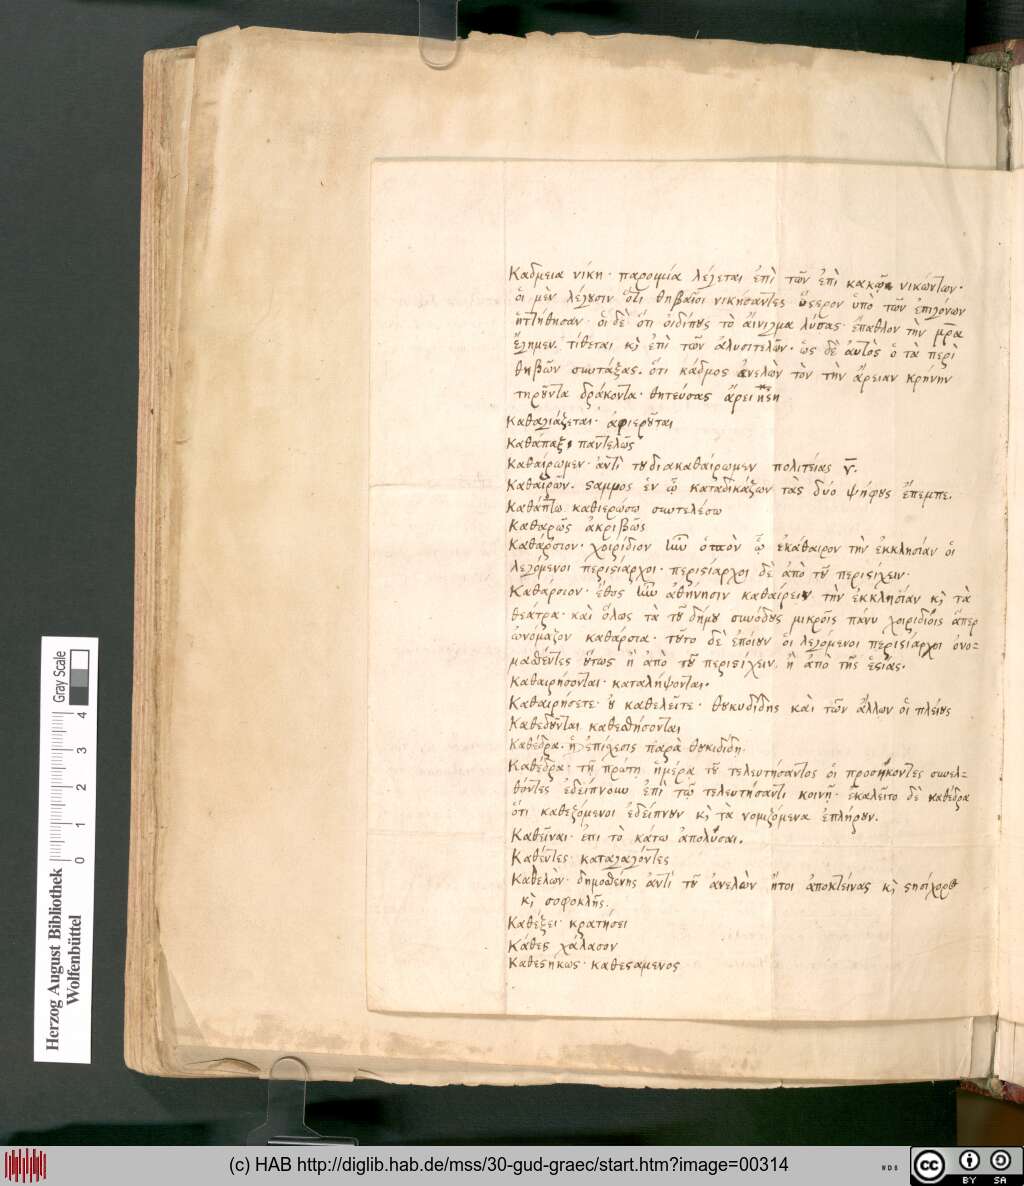 Καδμεια νίκη· παροιμία λέγεται ἐπὶ τῶν ἐπὶ κακῷ νικώντων·
οἱ μὲν λέγουσιν ὅτι θηβαῖοι νικήσαντες ὕστερον ὑπὸ τῶν ἐπιγόνων
ἡττήθησαν· οἱ δὲ ὅτι οἰδίπους τὸ αἴνιγμα λύσας ἔπαθλον τὴν μρ̅α
ἔγημεν. τίθεται κὶ ἐπὶ τῶν ἀλυσιτελῶν. ὡς δὲ αὐτὸς ὁ τὰ περὶ
θηβῶν συντάξας. ὅτι κάδμος ἀνελὼν τὸν τὴν ἄρειαν κρήνην
τηροῦντα δράκοντα· θητεύσας ἄρει
Καθαγιάζεται· ἀφιεροῦται
καθάπαξ παντελῶς
Καθαίρωμεν· ἀντὶ τοῦ διακαθαίρωμεν πολιτείας γ̅.
ἐν ᾧ καταδικάζων τὰς δύο ψήφους ἔπεμπε.
καθιερώσω συντελέσω
Καθαρῶς ἀκριβῶς
Καθάρσιον· χοιρίδιον ἦν ᾧ ἐκάθαιρον τὴν ἐκκλησίαν οἱ
λεγόμενοι περιστίαρχοι· περιστίαρχοι δὲ ἀπὸ τοῦ περιστίχειν·
Καθάρσιον· ἔθος ἦν ἀθήνησιν καθαίρειν τὴν ἐκκλησίαν κὶ τὰ
θέατρα· καὶ ὅλως τὰ τοῦ δήμου συνόδους μικροῖς πάνυ χοιριδίοις ἅπερ
ὠνόμαζον καθάρσια· τοῦτο δὲ ἐποίουν οἱ λεγόμενοι περιστίαρχοι ὀνο=
μασθέντες οὕτως ἢ ἀπὸ τοῦ περιστίχειν ἢ ἀπὸ τῆς ἑστίας.
Καθαιρήσονται· καταλήψονται.
Καθαιρήσετε· οὐ καθελεῖτε· θουκυδίδης καὶ τῶν ἄλλων οἱ πλείους
Καθεδοῦνται καθεσθήσονται
Καθέδρα· ἡ ἐπίσχεσις παρὰ θουκιδίδῃ·
Καθέδρα· τῇ πρώτῃ ἡμέρα τοῦ τελευτήσαντος οἱ προσήκοντες συνελ=
θόντες ἐδείπνουν ἐπὶ τῷ τελευτήσαντι κοινῇ· ἐκαλεῖτο δὲ καθέδρα
ὅτι καθεζόμενοι ἐδείπνουν κὶ τὰ νομιζόμενα ἐπλήρουν.
Καθεῖναι· ἐπι τὸ κάτω ἀπολῦσαι.
Καθέντες καταγαγόντες
Καθελὼν· δημοσθένης ἀντὶ τοῦ ἀνελὼν ἤτοι ἀποκτείνας κὶ στησίχορος
κὶ σοφοκλῆς.
Καθέξει· κρατήσει
Κάθες χάλασον
Καθεστηκως· καθεσταμενος
Herzog August Bibliothek
Wolfenbüttel
Gray Scale
0 1 2 3 4
(c) HAB http://diglib.hab.de/mss/30-gud-graec/start.htm?image=00314
WDB
cc BY SA